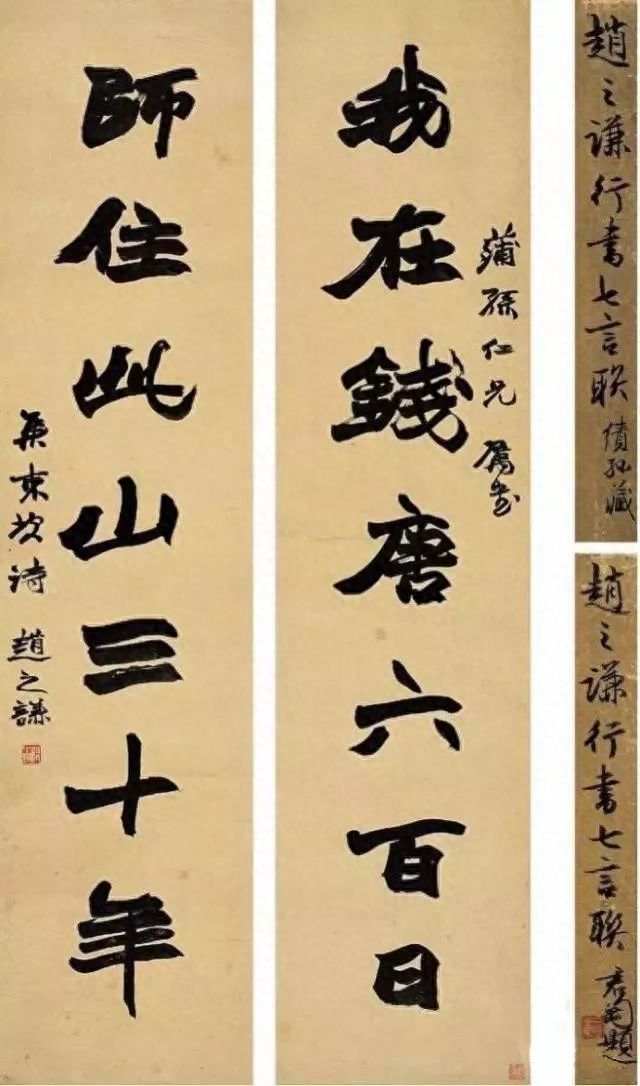 我在錢唐六百日
蒲孫仁兄屬書
師住此山三十年
集東坡詩 趙之謙
趙之謙行書七言联
趙之謙行書七言联